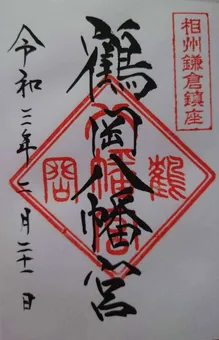 相州鎌倉鎮座
鶴岡八幡宮
鶴岡八幡宮
令和三年二月二十一日